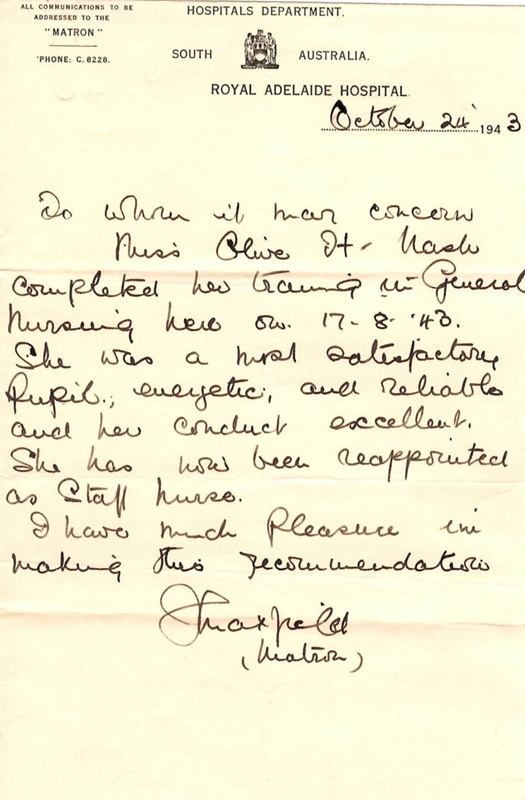 ALL COMMUNICATIONS TO BE
ADDRESSED TO THE
"MATRON"
'PHONE: C. 8228.
HOSPITALS DEPARTMENT.
SOUTH AUSTRALIA.
ROYAL ADELAIDE HOSPITAL.
October 24 1943
To whom it may concern
Miss Olive H. Nash
completed her training in General
Nursing here on 17-8-'43.
She was a most satisfactory
pupil, energetic, and reliable
and her conduct excellent.
She has now been reappointed
as Staff Nurse.
I have much pleasure in
making this recommendation
Maxfield
(Matron)